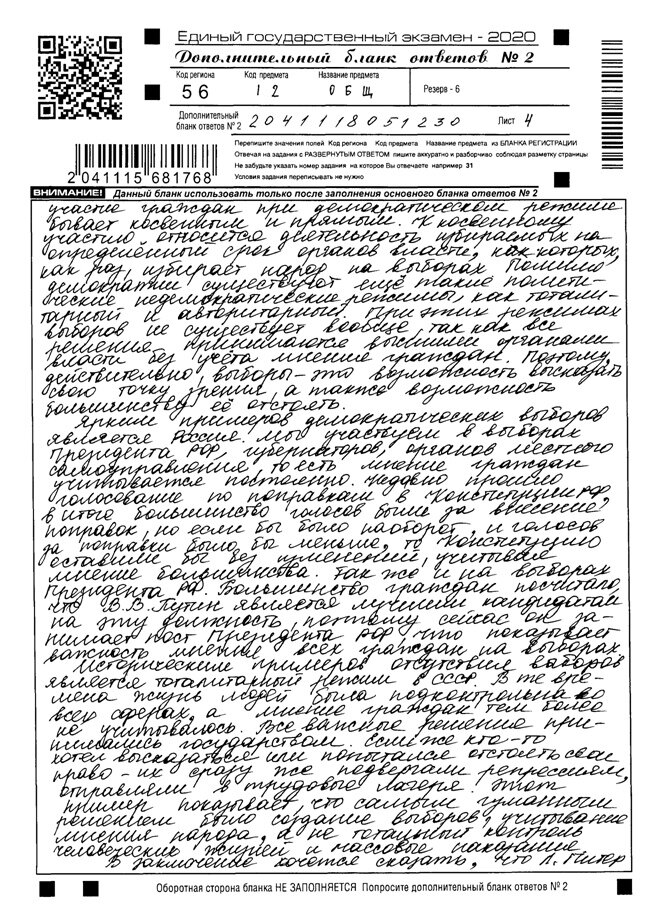 Единый государственный экзамен - 2020
Дополнительный бланк ответов № 2
Код региона Код предмета Название предмета
56 12 ОБЩ Резерв - 6
Дополнительный
бланк ответов № 2 2041118051230 Лист 4
Перепишите значения полей Код региона Код предмета Название предмета из БЛАНКА РЕГИСТРАЦИИ
Отвечая на задания с РАЗВЕРНУТЫМ ОТВЕТОМ пишите аккуратно и разборчиво соблюдая разметку страницы
Не забудьте указать номер задания на которое Вы отвечаете например 31
Условия задания переписывать не нужно
2041115681768
ВНИМАНИЕ! Данный бланк использовать только после заполнения основного бланка ответов № 2
участие граждан при демократическом режиме
бывает косвенным и прямым. К косвенному
участию относится деятельность избираемых на
определённый срок органов власти, как которых,
как раз, избирает народ на выборах Помимо
демократии существуют ещё такие полити-
ческие недемократические режимы, как тотали-
тарный и авторитарный. При этих режимах
выборов не существует вообще, так как все
решения принимаются высшими органами
власти без учёта мнение граждан. Поэтому,
действительно, выборы - это возможность высказать
свою точку зрения, а также возможность
большинству её отстоять.
Ярким примером демократических выборов
является Россия. Мы участвуем в выборах
Президента РФ, губернаторов, органов местного
самоуправления, то есть мнение граждан
учитывается постоянно. Недавно прошло
голосование по поправкам в Конституции РФ,
в итоге большинство голосов были за внесение
поправок, но если бы было наоборот, и голосов
за поправки было бы меньше, то Конституцию
оставили бы без изменений, учитывая
мнение большинства. Так же и на выборах
Президента РФ. Большинство граждан посчитало,
что В.В. Путин является лучшим кандидатом
на эту должность, поэтому сейчас он за-
нимает пост Президента РФ что показывает
важность мнение всех граждан на выборах.
Историческим примером отсутствия выборов
является тоталитарный режим в СССР. В те вре-
мена жизнь людей была подконтрольна во
всех сферах, а мнение граждан тем более
не учитывалось. Все важные решение при-
нимались государством. Если же кто-то
хотел высказаться или попытался отстоять свои
право - их сразу же подвергали репрессиям,
отправляли в трудовые лагеря. Этот
пример показывает, что самым гуманным
решением было создание выборов, учитывание
мнения народа, а не тотальный контроль
человеческих жизней и массовые наказание
В заключение хочется сказать, что Л. Питер
Оборотная сторона бланка НЕ ЗАПОЛНЯЕТСЯ Попросите дополнительный бланк ответов № 2